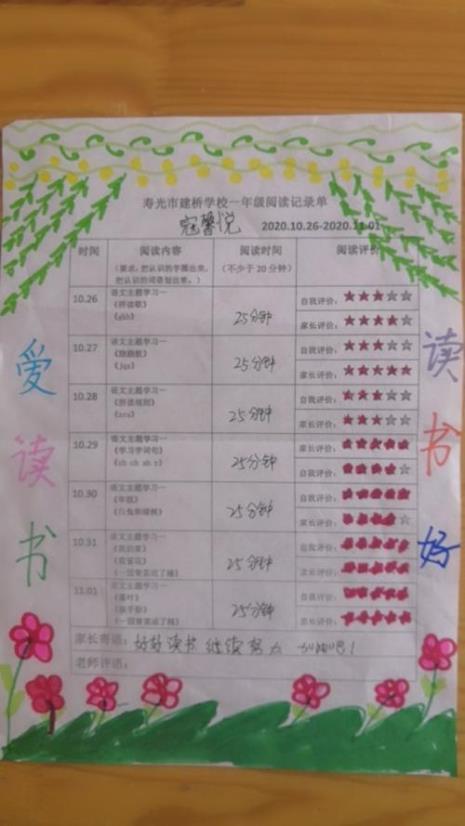 寿光市建桥学校一年级阅读记录单
寇馨悦 2020.10.26-2020.11.01
时间 阅读内容 阅读时间 阅读评价
（要求：把认识的字圈出来，
（不少于20分钟）
把认识的词语划出来。）
10.26 语文主题学习一
《拼读歌》
《gkh》
25分钟
自我评价：★★★☆☆
家长评价：★★★★☆
10.27 语文主题学习一
《jqx》
25分钟
自我评价：★★★★☆
家长评价：★★★★★
10.28 语文主题学习一
《拼读规则》
《zcs》
25分钟
自我评价：★★★☆☆
家长评价：★★★★☆
10.29 语文主题学习一
《学习字词句》
《zh ch sh r》
25分钟
家长评价：★★★★★
自我评价：★★★★☆
10.30 语文主题学习一
《年级》
《白兔和绿树》
25分钟
自我评价：★★★★★
家长评价：★★★★☆
10.31 语文主题学习一
25分钟
自我评价：★★★★★
家长评价：★★★★★
11.01 语文主题学习一
25分钟
自我评价：★★★★★
家长评价：★★★★★
家长寄语：好好读书 继续努力
老师评语：
爱读书
读书好